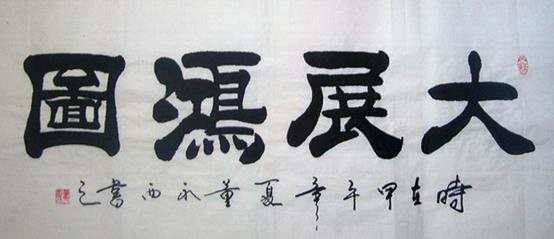 大展鴻圖
時在甲午夏董永西書之